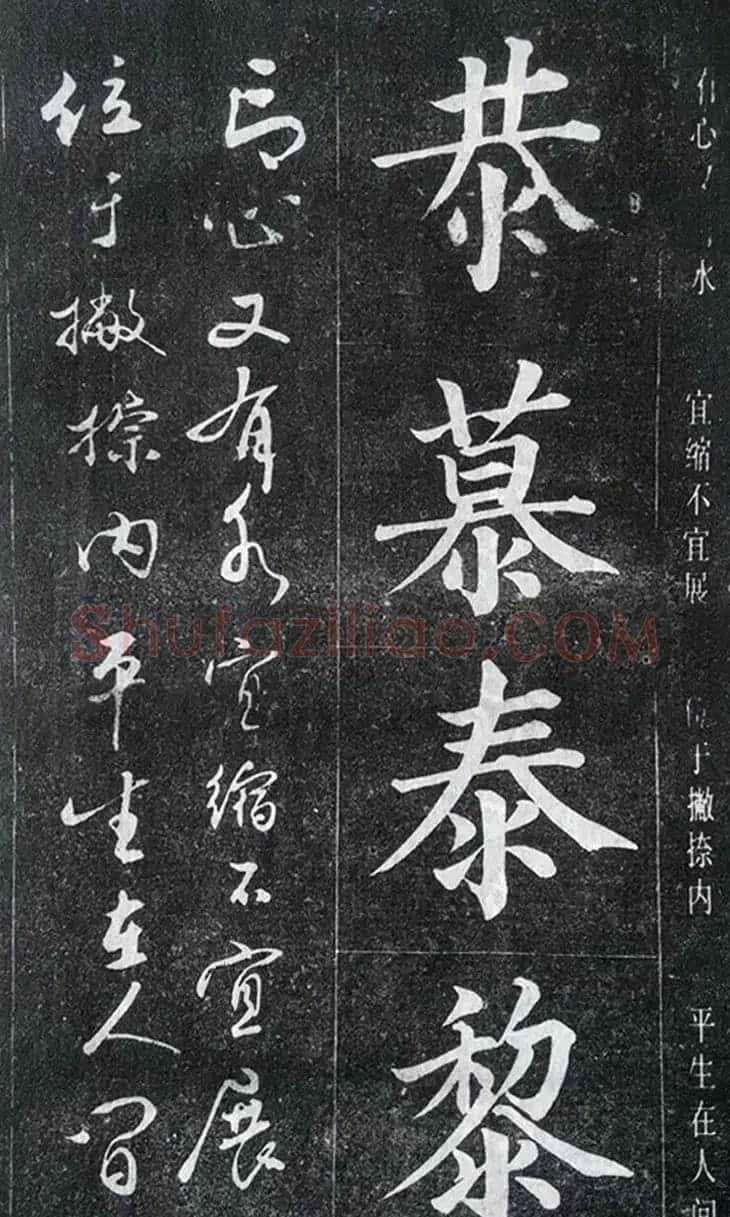 心 水 宜缩不宜展 位于撇捺内 平生在人间
恭慕泰黎
心又有水宜缩不宜展
位于撇捺内平生在人间
Shufaziliao.COM